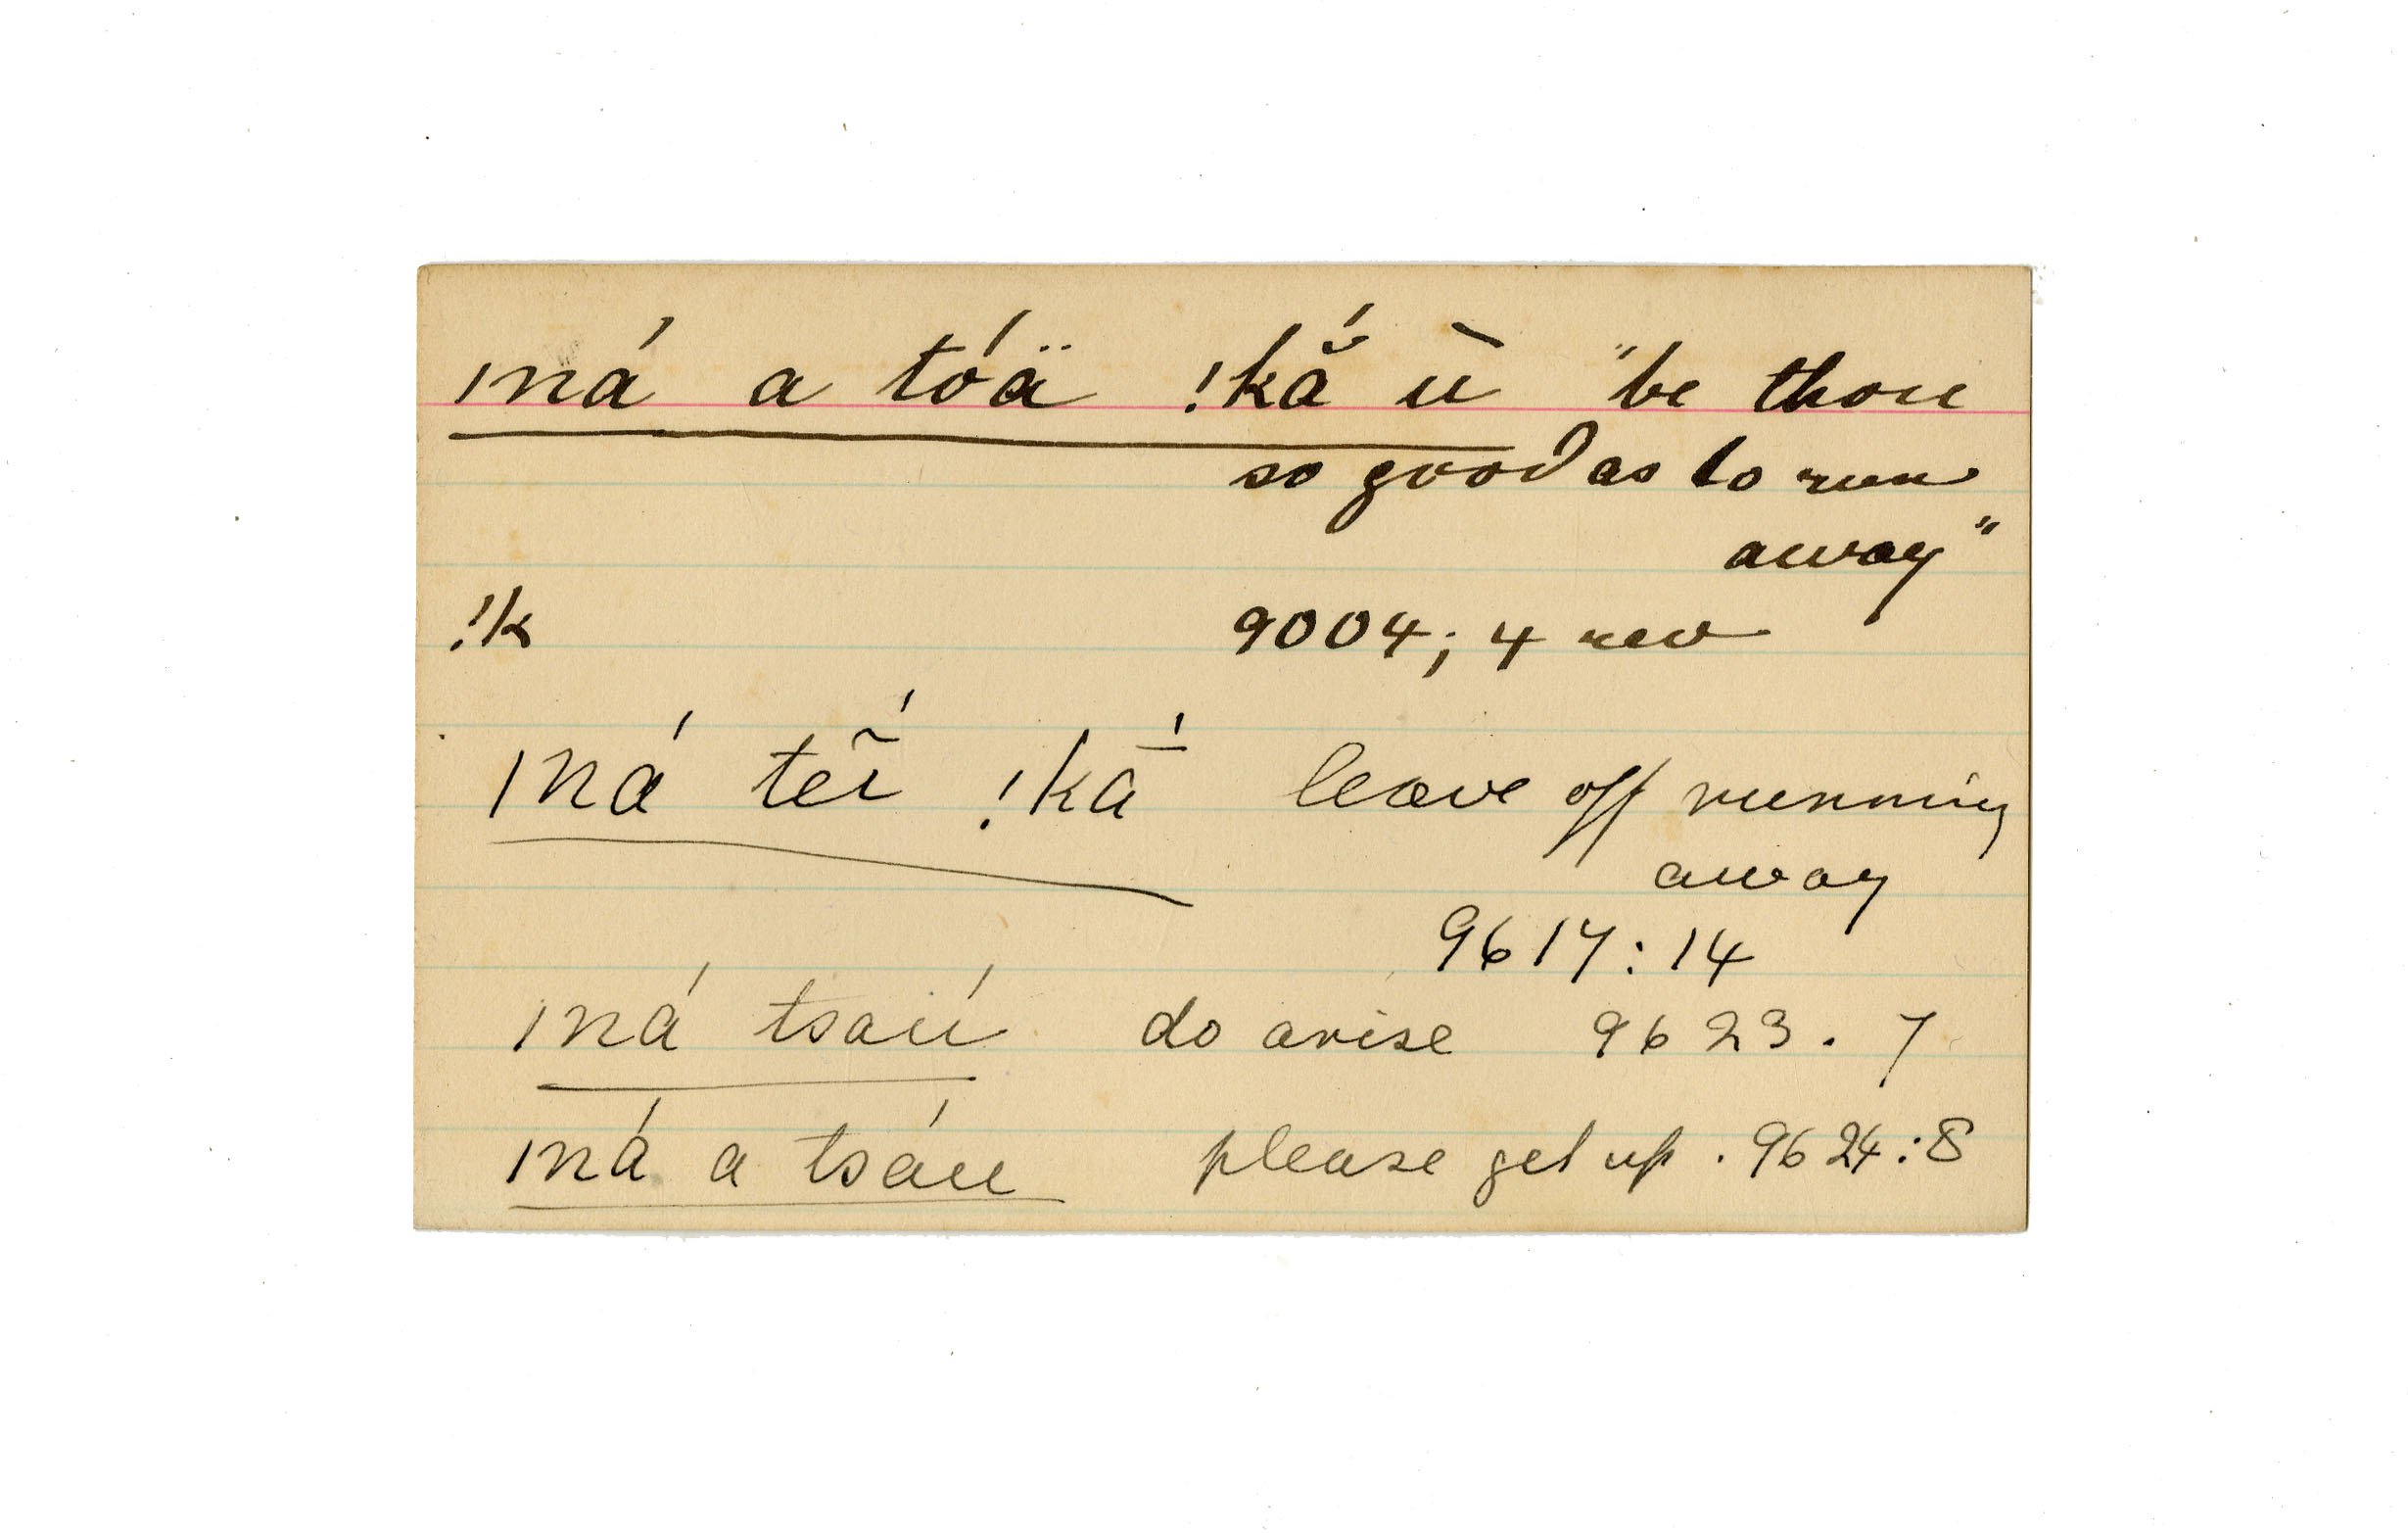 ǀná a tóä !kắ ū "be thou
so good as to run
away"
!k 9004; 4 rev
ǀná teĩ́ !kā́ leave off running
away
9617:14
ǀná tsaú do arise 9623. 7
ǀná a tsáu please get up. 9624:8